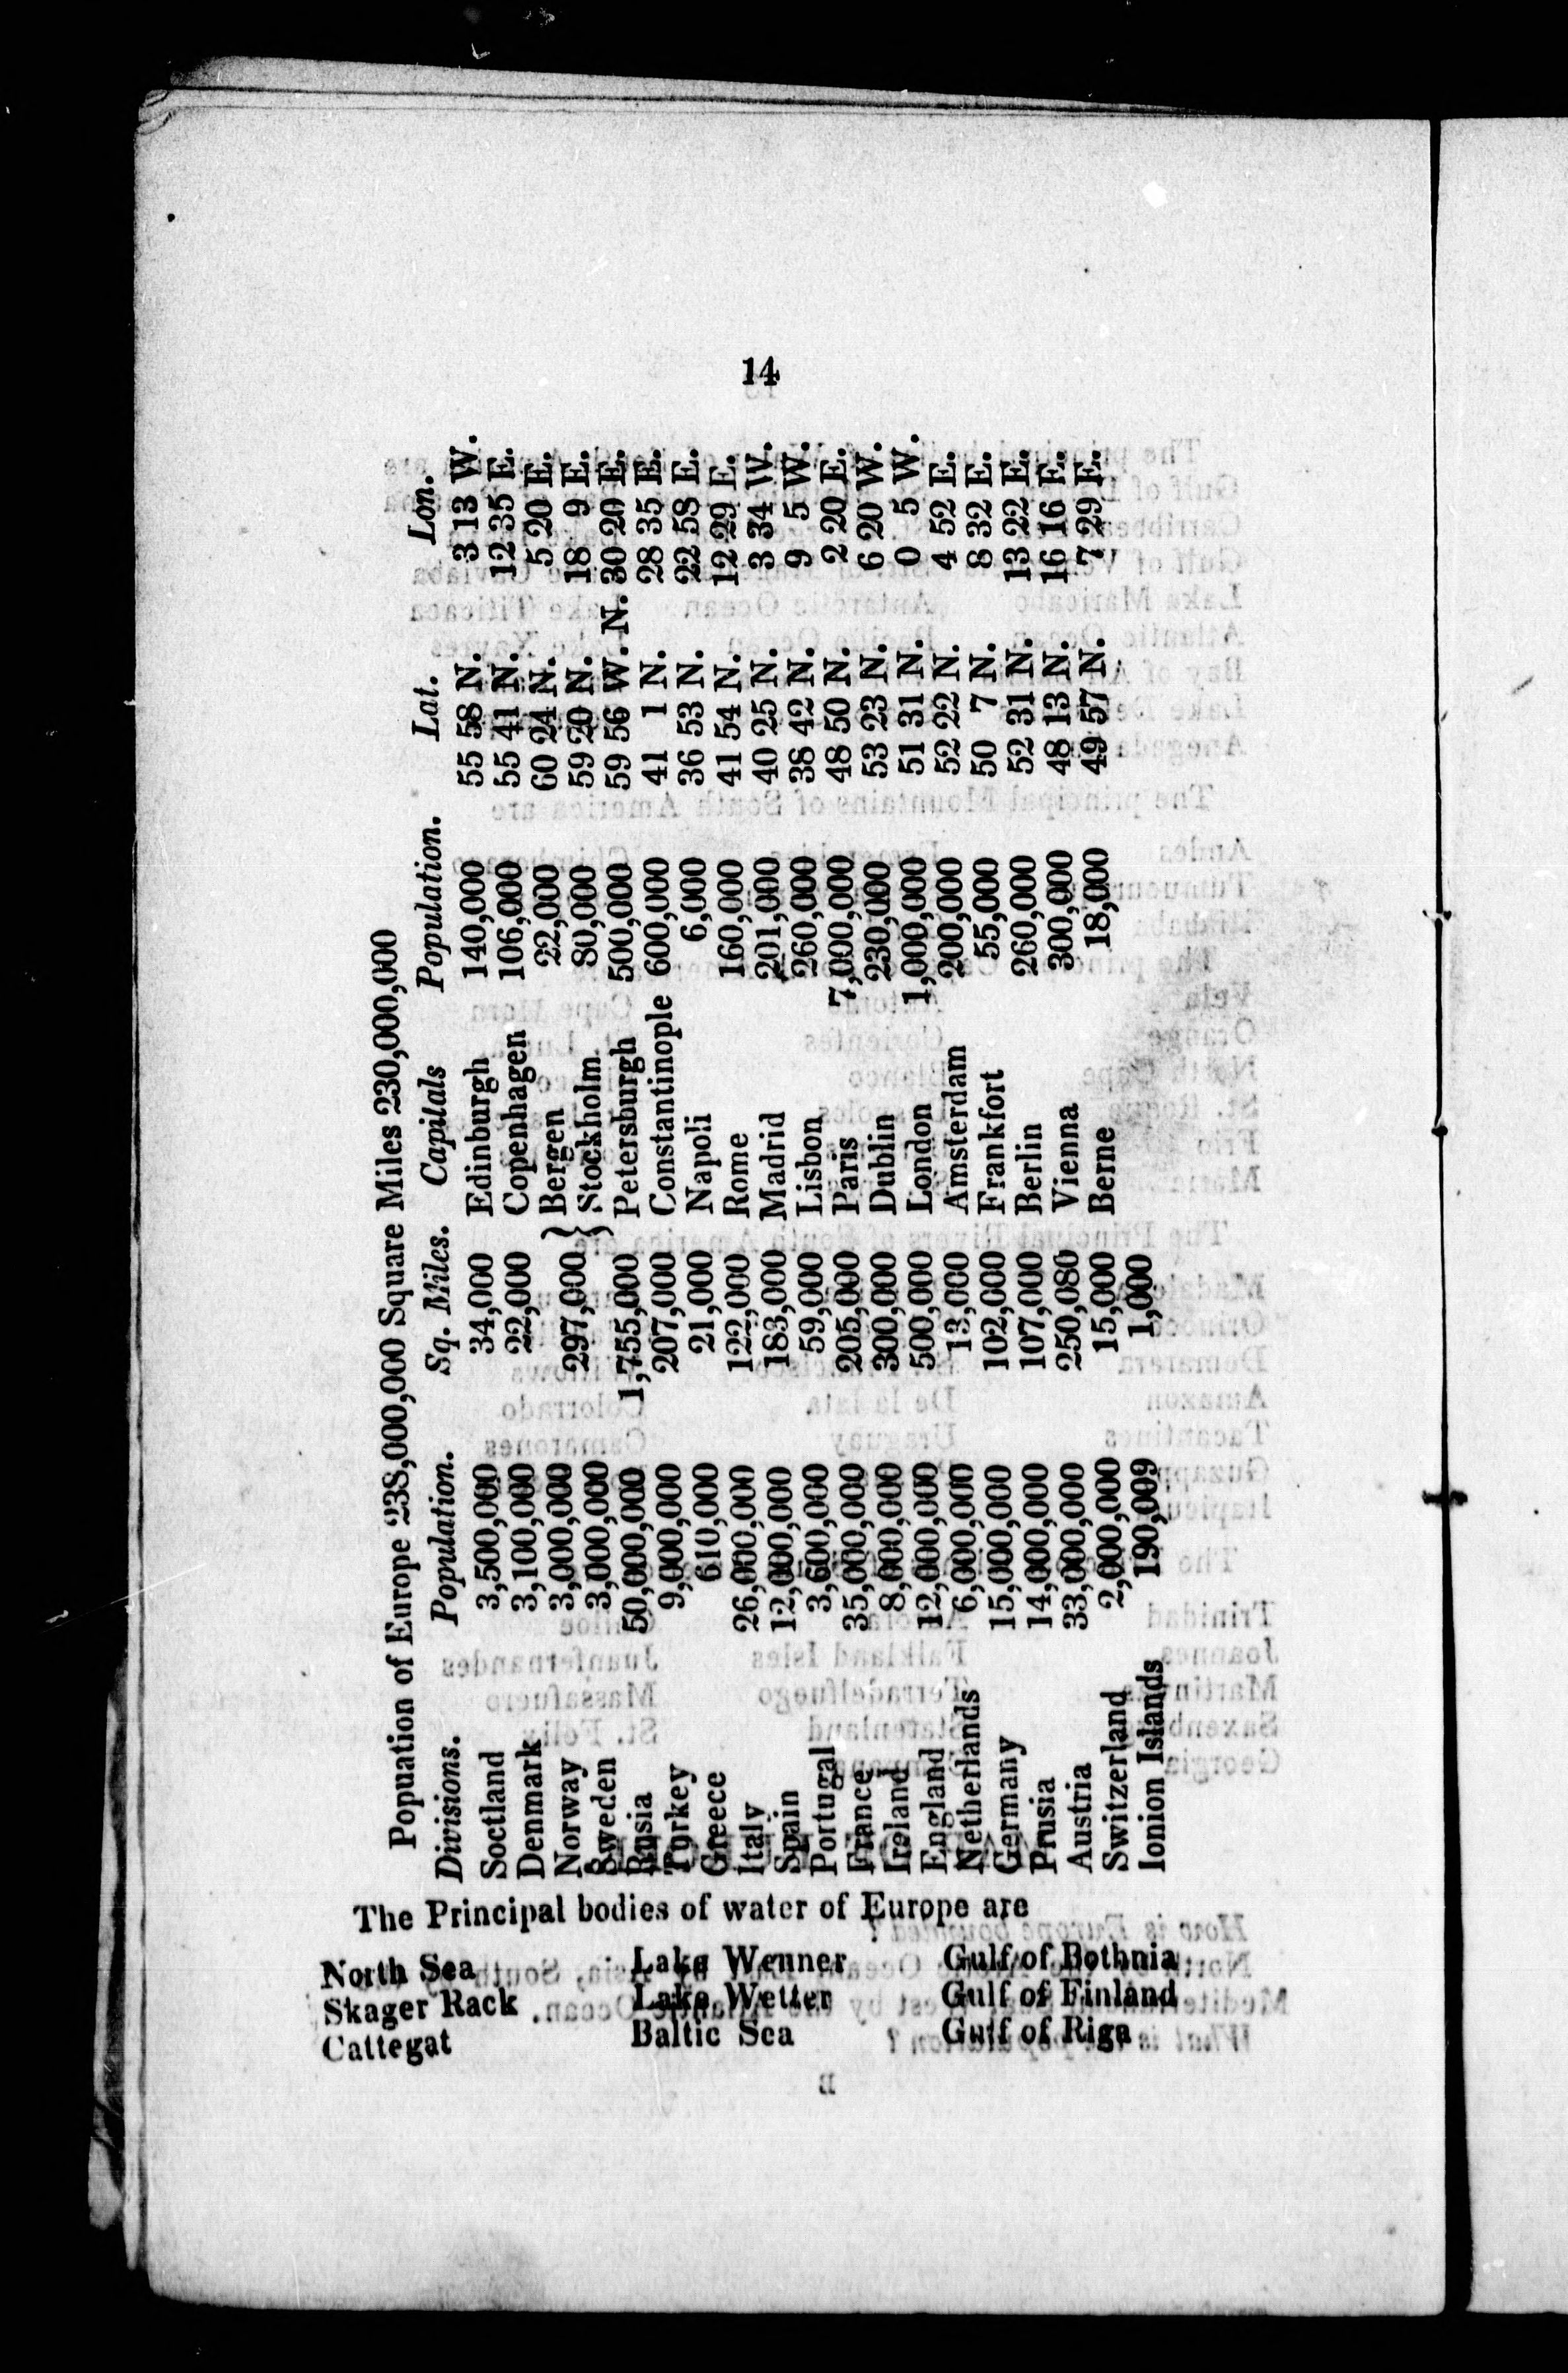 14
Popuation of Europe 238,000,000 Square Miles 230,000,000
Divisions. Population. Sq. Miles. Capitals Population. Lat. Lon.
Soctland 3,500,000 34,000 Edinburgh 140,000 55 58 N. 3 13 W.
Denmark 3,100,000 22,000 Copenhagen 106,000 55 41 N. 12 35 E.
Norway 3,000,000 Bergen 22,000 60 24 N. 5 20 E.
Sweden 3,000,000 297,000 } Stockholm 80,000 59 20 N. 18 9 E.
Rusia 50,000,000 1,755,000 Petersburgh 500,000 59 56 W. N. 30 20 E.
Torkey 9,000,000 207,000 Constantinople 600,000 41 1 N. 28 35 E.
Greece 610,000 21,000 Napoli 6,000 36 53 N. 22 58 E.
Italy 26,000,000 122,000 Rome 160,000 41 54 N. 12 29 E.
Spain 12,000,000 183,000 Madrid 201,000 40 25 N. 3 34 W.
Portugal 3,600,000 59,000 Lisbon 260,000 38 42 N. 9 5 W.
France 35,000,000 205,000 Paris 7,000,000 48 50 N. 2 20 E.
Ireland 8,000,000 300,000 Dublin 230,000 53 23 N. 6 20 W.
England 12,000,000 500,000 London 1,000,000 51 31 N. 0 5 W.
Netherlands 6,000,000 13,000 Amsterdam 200,000 52 22 N. 4 52 E.
Germany 15,000,000 102,000 Frankfort 55,000 50 7 N. 8 32 E.
Prusia 14,000,000 107,000 Berlin 260,000 52 31 N. 13 22 E.
Austria 33,000,000 250,080 Vienna 300,000 48 13 N. 16 16 E.
Switzerland 2,000,000 15,000 Berne 18,000 49 57 N. 7 29 E.
Ionion Islands 190,009 1,000
The Principal bodies of water of Europe are
North Sea Lake Wenner Gulf of Bothnia
Skager Rack Lake Wetter Gulf of Finland
Cattegat Baltic Sea Gulf of Riga